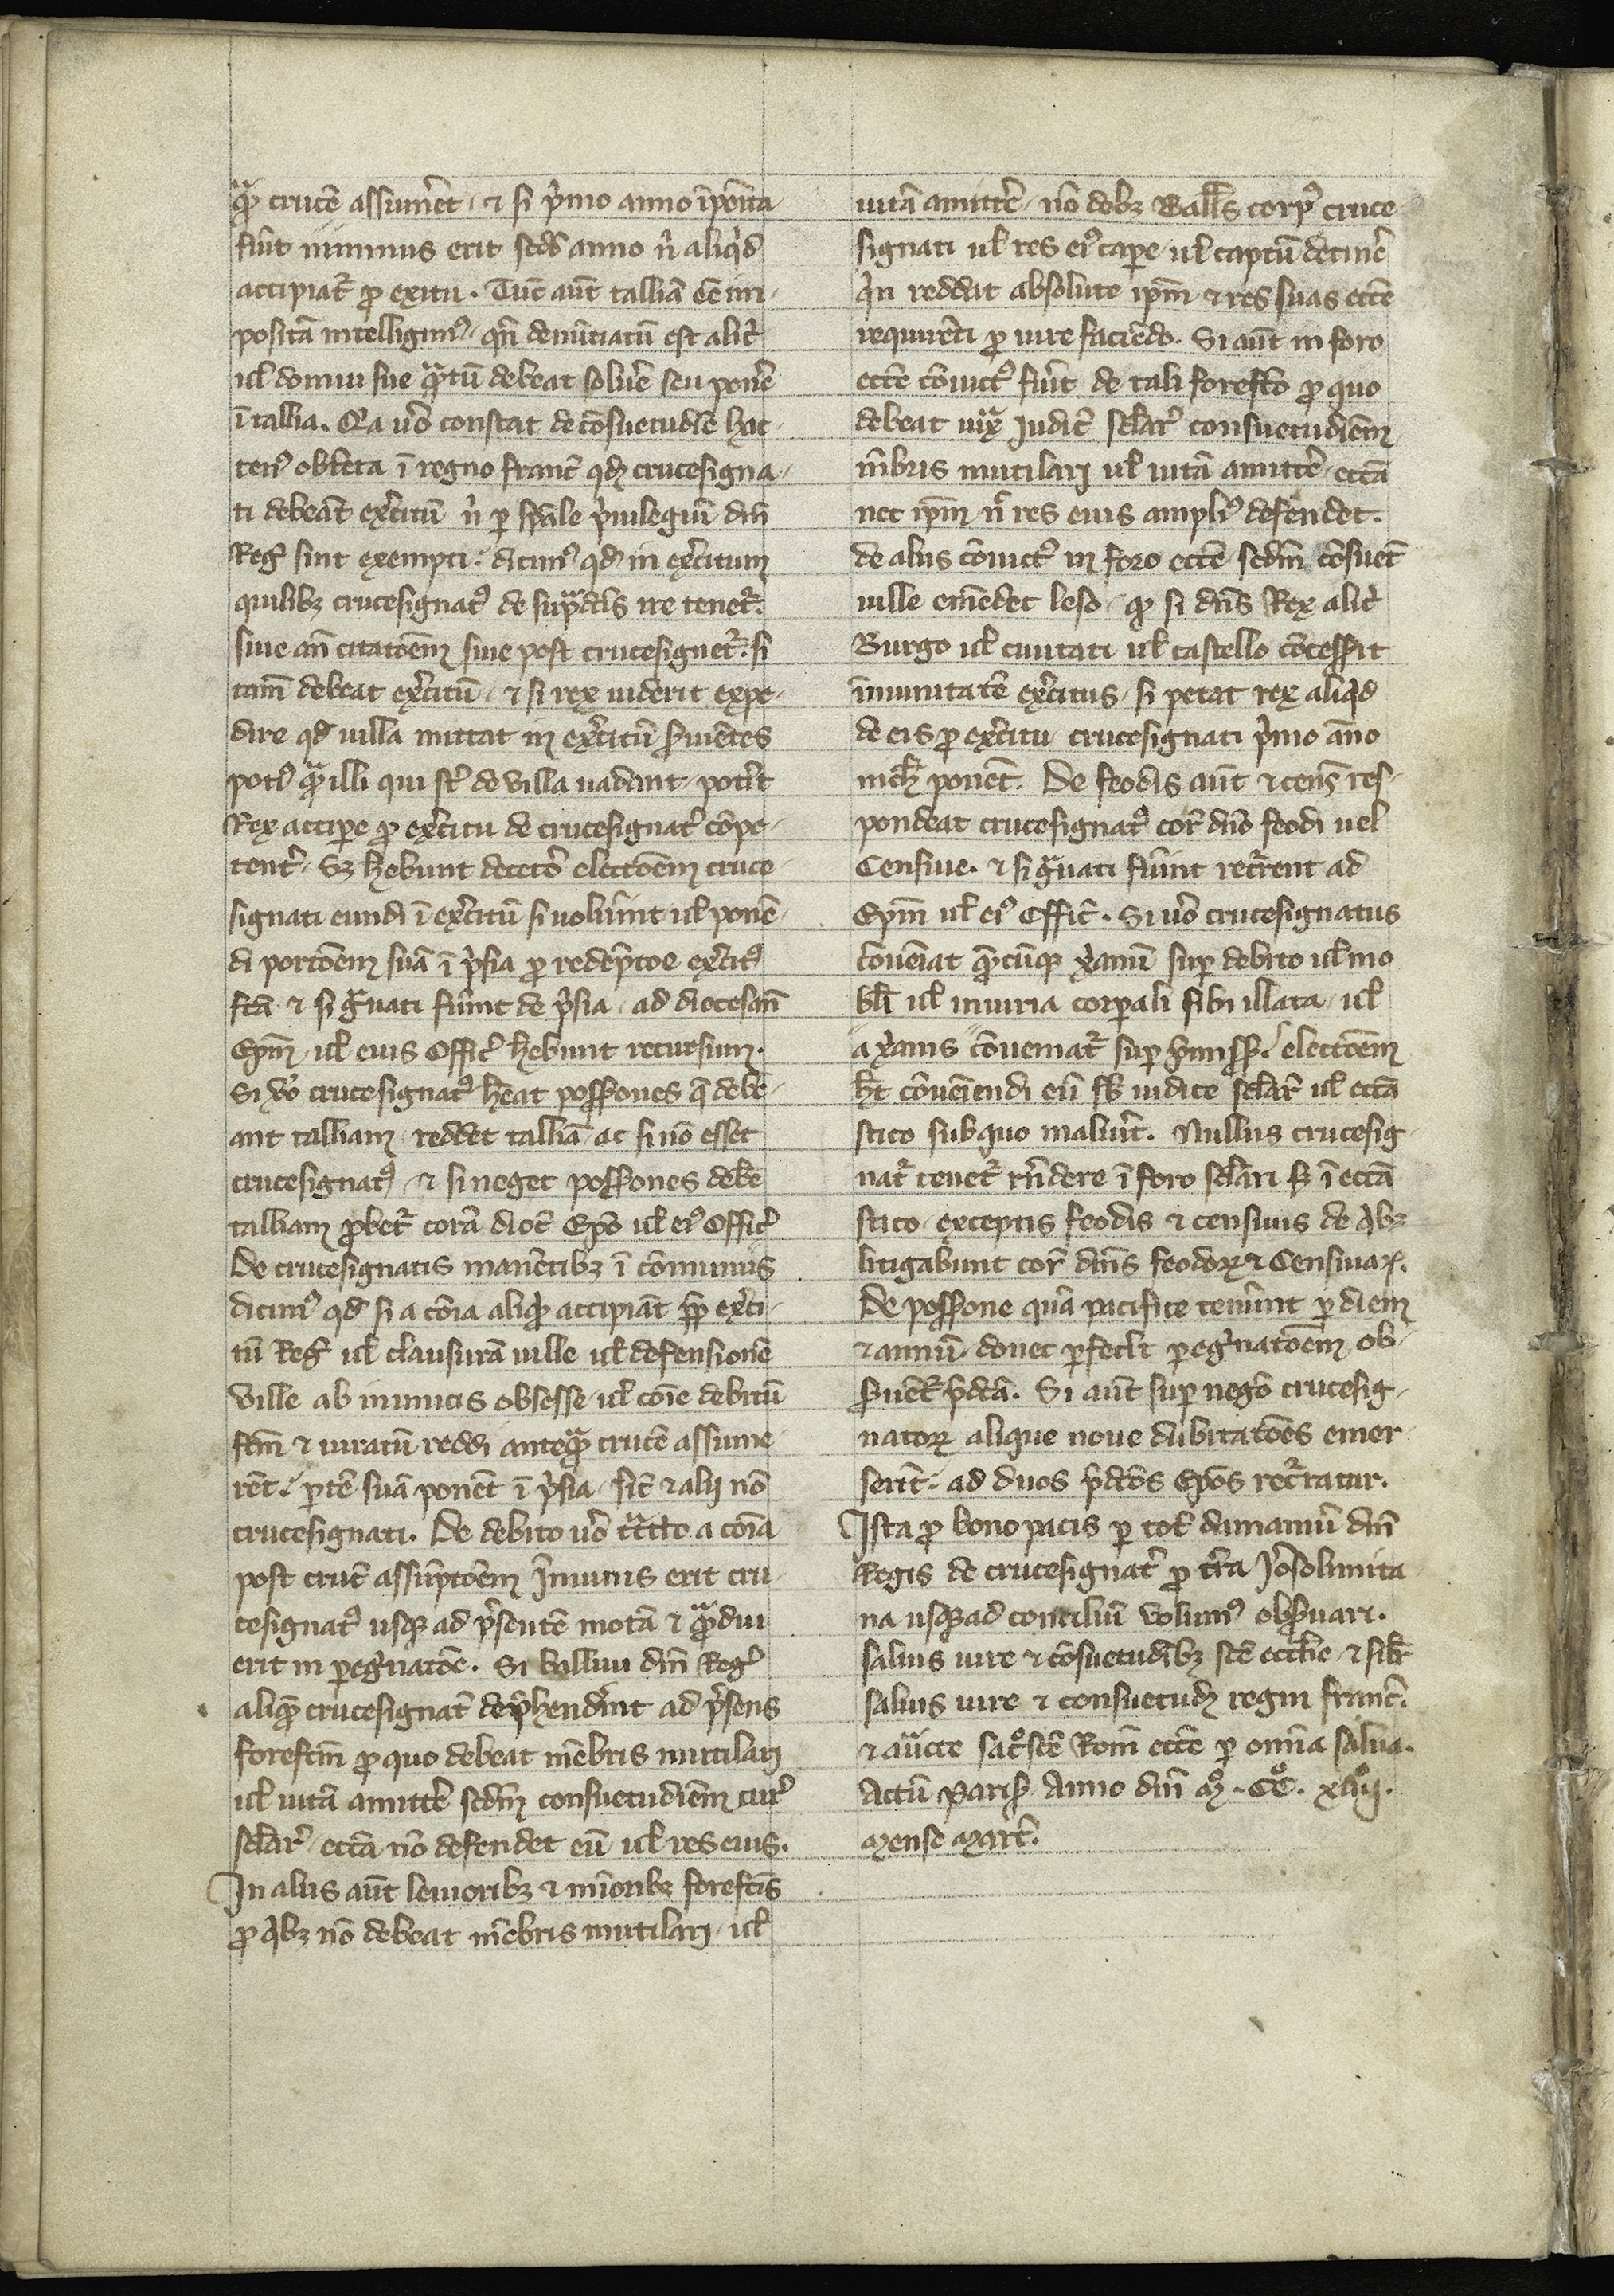 qᷓ crucē assumēt · ⁊ si pͥmo anno īpoīta
fuīt inmunis erit scdo anno nͥ aliqͥd
accipiatᷣ pro exitu · Tūc aūt talliā eē in-
positā intelligimꝰ · qn̄ denūtiatū est alicͥ
ul̓ domui sue qᷓtū debeat soluē seu ponē
ī tallia. Qͥa uͦo constat de cōsuetudīe hac-
tenꝰ obtēta ī regno franc̄ qd̓ crucesigna-
ti debeāt exͨcitū nͥ ꝑ spāle pͥuilegiū dn̄i
Reg̓ sint exempti. dicimꝰ qd̓ in exͨcitum
quilibꝫ crucesignatꝰ de supᷓdc̄is ire tenetᷣ.
siue an̄ citatōem siue post crucesignetᷣ. si
tam̄ debeat exͨcitū · ⁊ si rex uiderit expe-
dire qd̓ uilla mittat in exͨcitū ẜuientes
potiꝰ qᷓ illi qui st̄ de villa uadant · potīt
Rex accipe ꝓ exͨcitu de crucesignat̓ cōpe-
tent̓ · Sꝫ hēbunt decetō electōem cruce-
signati eundi ī exͨcitū si uoluīnt ul̓ ponē-
di portōem suā ī pͥsia ꝓ redēptōe exͨcitꝰ
fc̄a ⁊ si gᷓuati fuīnt de pͥsia · ad diocesan̄
Epm̄ · ul̓ eius Offic̓ hēbunt recursum.
Si uͦo crucesignatꝰ hēat possiōnes q̄ debe-
ant talliam reddet talliā ac si nō esset
crucesignatꝰ · ⁊ si neget possiōnes debē
talliam ꝓbetᷣ corā dioc̄ Epō ul̓ eiꝰ Offic̓
De crucesignatis manētibꝫ ī cōmuniis
dicimꝰ qd̓ si a cōia aliqᷓ accipiāt ꝓpt̄ exͨci-
tū Reg̓ ul̓ clausurā uille ul̓ defensionē
ville ab inimicis obsesse · ul̓ cōie debitū
fc̄m ⁊ iuratū reddi anteqᷓ crucē assume-
rēt. ꝑtē suā ponēt ī pͥsia · sic̄ ⁊ alij nō
crucesignati. De debito uͦo cͣcto a cōia
post cruc̄ assūptōem īmunis erit cru-
cesignatꝰ usqꝫ ad pͥsentē motā ⁊ qᷓdiu
erit in ꝑegͥnatōe. Si balliui dn̄i Reg̓
aliqē crucesignat̄ dephendīnt ad pͥsens
forefc̄m ꝓ quo debeat mēbris mutilari
ul̓ uitā amittē scd̄m consuetudīem cur̓
sclar̓ · eccā nō defendet eū ul̓ res eius.
In aliis aūt leuioribꝫ ⁊ mīoribꝫ forefc̄is
ꝓ qͥbꝫ nō debeat mēbris mutilari · ul̓
uitā amittē · nō debꝫ Ballīs corpꝰ cruce-
signati ul̓ res eiꝰ cape · ul̓ captū detinē
qͥn reddat absolute ipm̄ ⁊ res suas eccē
requirēti ꝓ iure faciēdo. Si aūt in foro
eccē cōuictꝰ fuīt de tali forefc̄o ꝓ quo
debeat iuxᷓ Judic̄ sclar̓ consuetudīem
mēbris mutilari ul̓ uitā amittē · eccā
nec ipm̄ nͨ res eius ampliꝰ defendet.
de aliis cōuictꝰ in foro eccē scd̄m cōsuet̄
uille emēdet leso · qᷓ si dn̄s Rex alicͥ
Burgo ul̓ ciuitati ul̓ castello cōcesserit
īmunitatē exͨcitus · si petat rex aliqͥd
de eis ꝓ exͨcitu crucesignati pͥmo āno
nich̓ ponēt. De feodis aūt ⁊ cens̓ res-
pondeat crucesignatꝰ cor̄ dn̄o feodi uel
Censiue. ⁊ si gᷓuati fuīnt recͬrent ad
Epm̄ ul̓ eiꝰ Offic̓. Si uͦo crucesignatus
cōueniat qͤcūqꝫ xͥanū sup debito ul̓ mo
bli ul̓ iniuria corpali sibi illata · ul̓
a xͥanis cōueniatᷣ sup pͥmiss̓. electōem
ht̄ cōueniendi eū sb̓ iudice sclar̓ ul̓ eccā
stico sub quo maluīt. Nullus crucesig-
nat̓ tenetᷣ rn̄dere ī foro sclari sꝫ ī eccā
stico · exceptis feodis ⁊ censiuis de qͥbꝫ
litigabunt cor̄ dn̄is feodoꝝ ⁊ Censiuaꝝ.
De possiōne quā pacifice tenuīnt ꝑ diem
⁊ annū · donec ꝑfecīt ꝑegͥnatōem ob-
ẜuētᷣ pͥdc̄a. Si aūt sup negō crucesig-
natoꝝ alique noue dubitatōes emer-
serīt. ad duos pͥdc̄os Epōs recͬratur.
Ista ꝓ bono pacis ꝑ tot̄ damaniū dn̄i
Regis de crucesignat̓ ꝓ tr̄a Ierōsolimita
na usqꝫ ad conciliū volumꝰ obẜuari.
saluis iure ⁊ cōsuetudībꝫ sc̄e ecclīe · ⁊ silr̄
saluis iure ⁊ consuetud̓ regni franc̄.
⁊ auͨcte sacͦsc̄e Rom̄ eccē ꝑ omīa salua.
Actū Paris̓ Anno dn̄i mͦ · CCͦ · xiiijͦ.
Mense Marc̓.